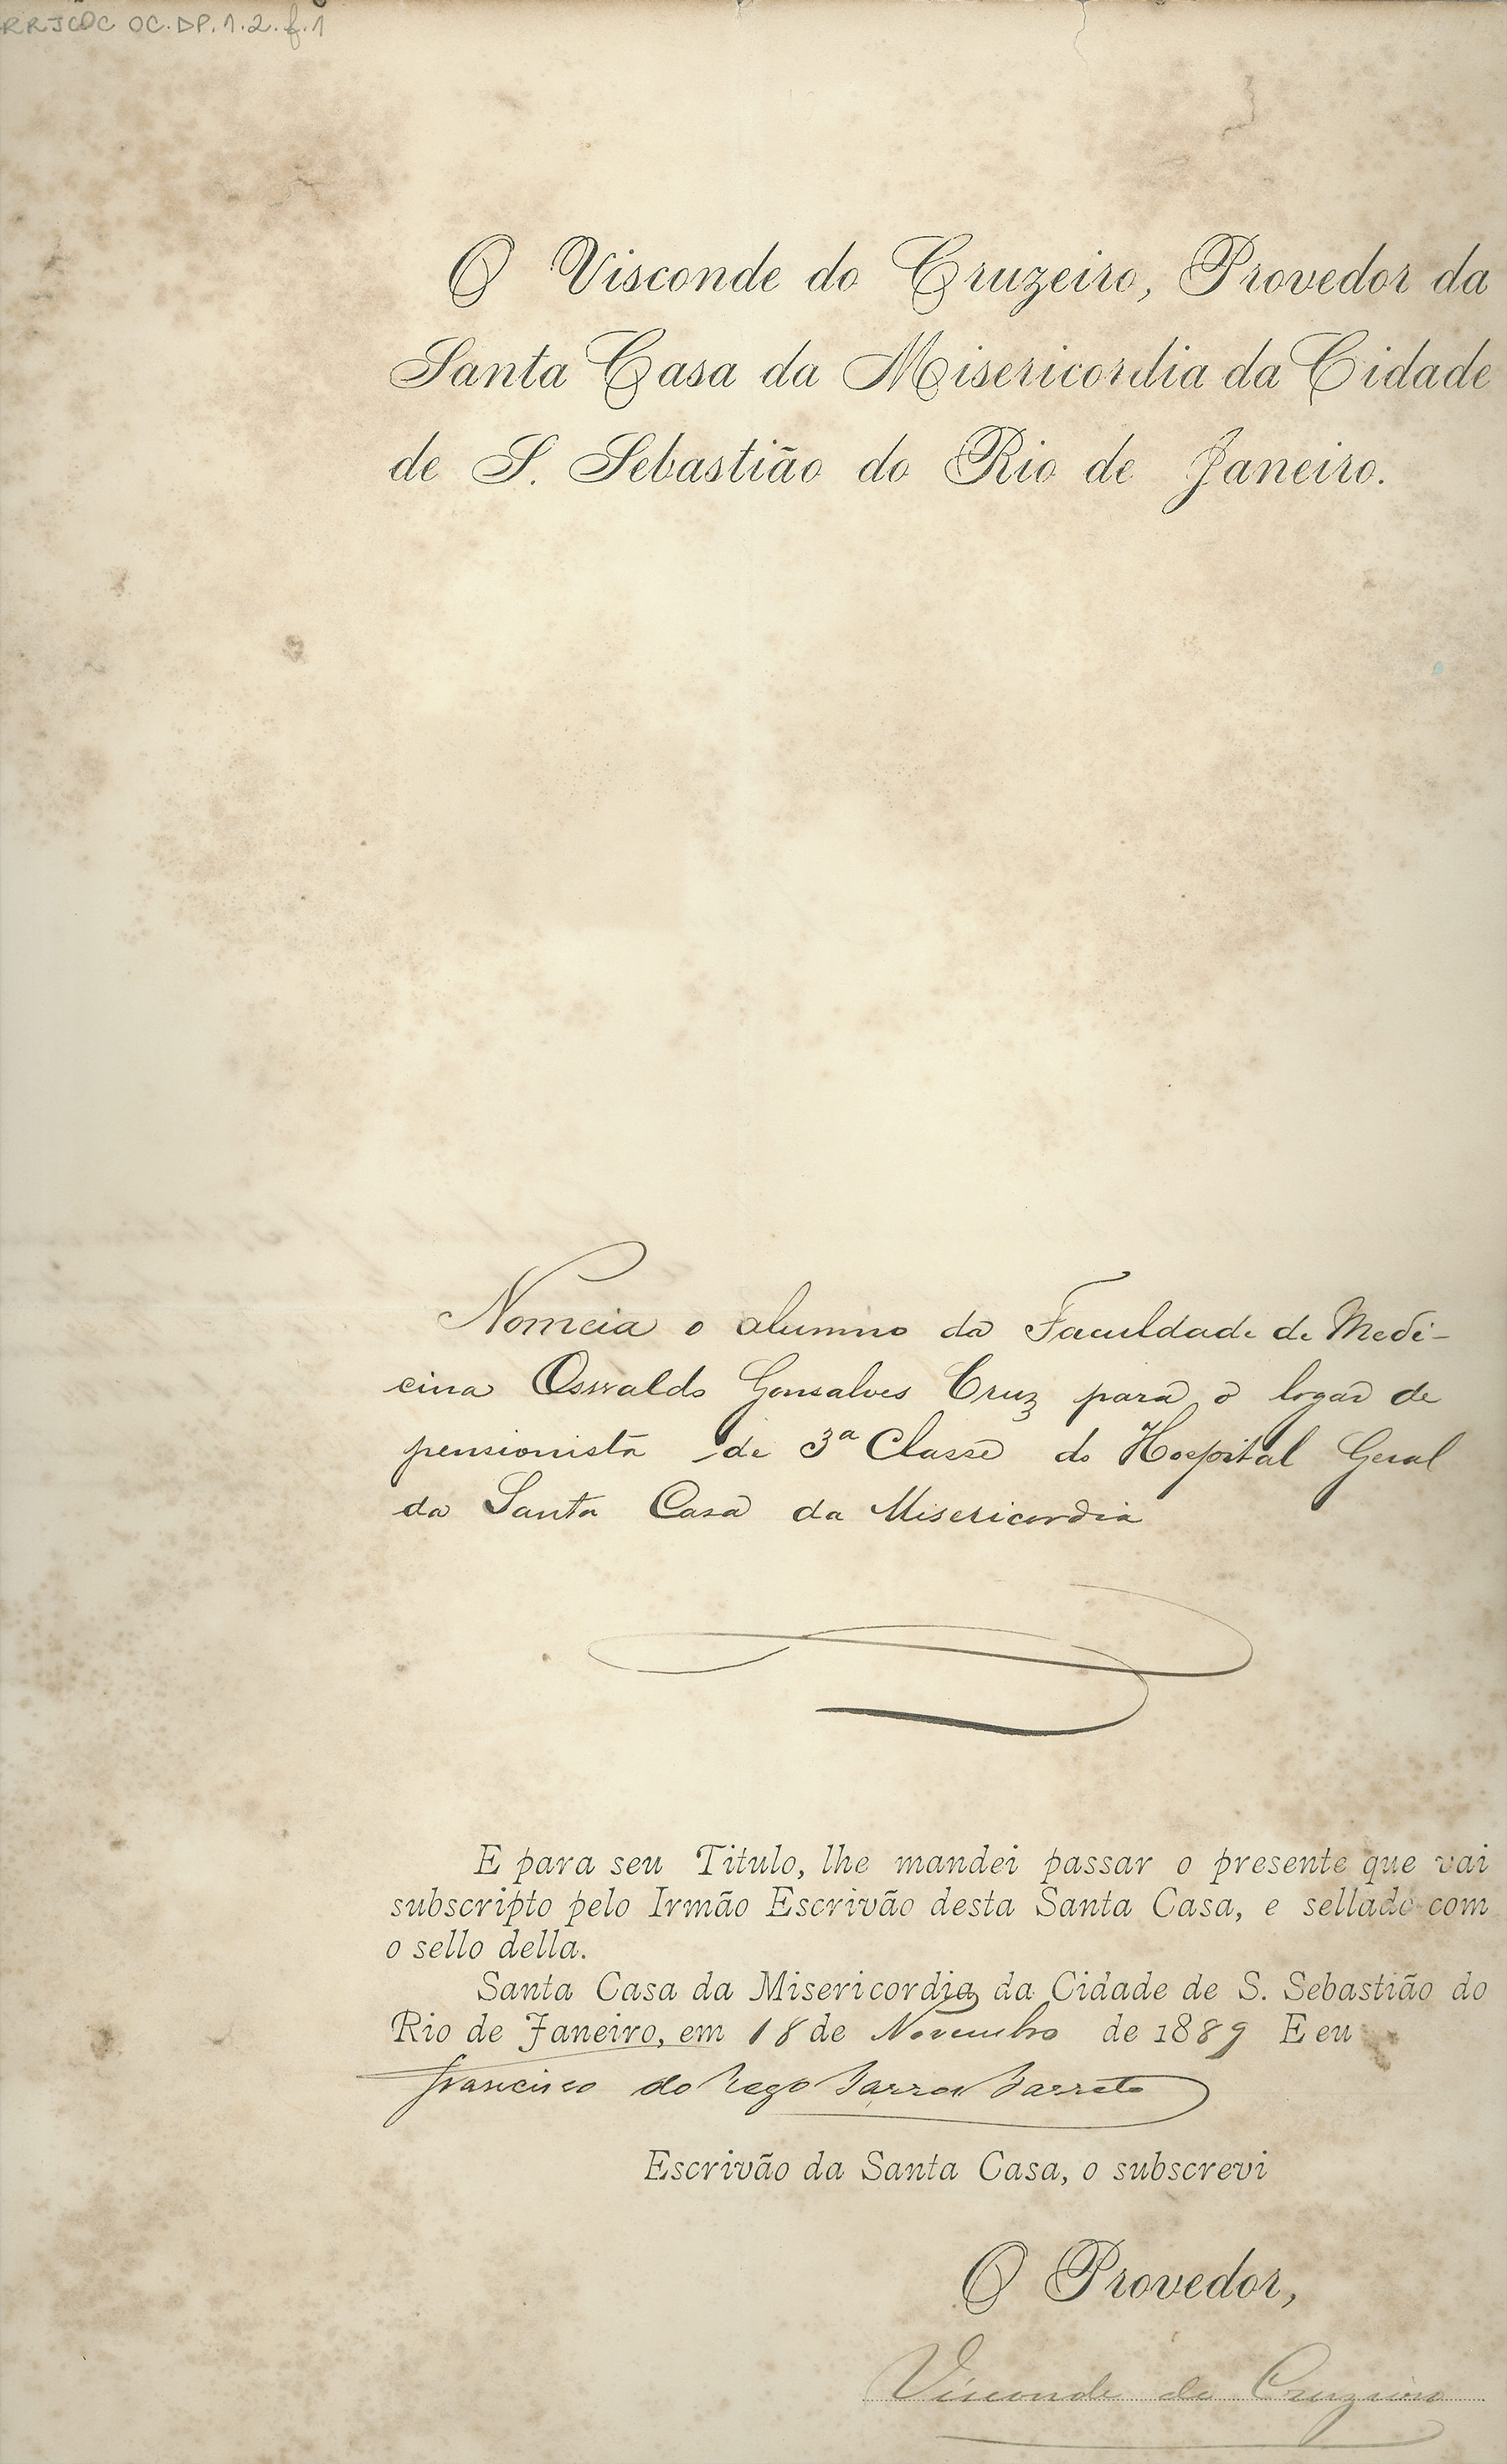 RRJCOC OC.DP.1.2.f.1
O Visconde do Cruzeiro, Provedor da
Santa Casa da Misericordia da Cidade
de S. Sebastião do Rio de Janeiro.
Nomeia o alumno da Faculdade de Medi-
cina Oswaldo Gonsalves Cruz para o logar de
pensionista de 3ª Classe do Hospital Geral
da Santa Casa da Misericordia
E para seu Titulo, lhe mandei passar o presente que vai
subscripto pelo Irmão Escrivão desta Santa Casa, e sellado com
o sello della.
Santa Casa da Misericordia da Cidade de S. Sebastião do
Rio de Janeiro, em 18 de Novembro de 1889 E eu
Francisco do Rego Barros Barreto
Escrivão da Santa Casa, o subscrevi
O Provedor,
Visconde do Cruzeiro